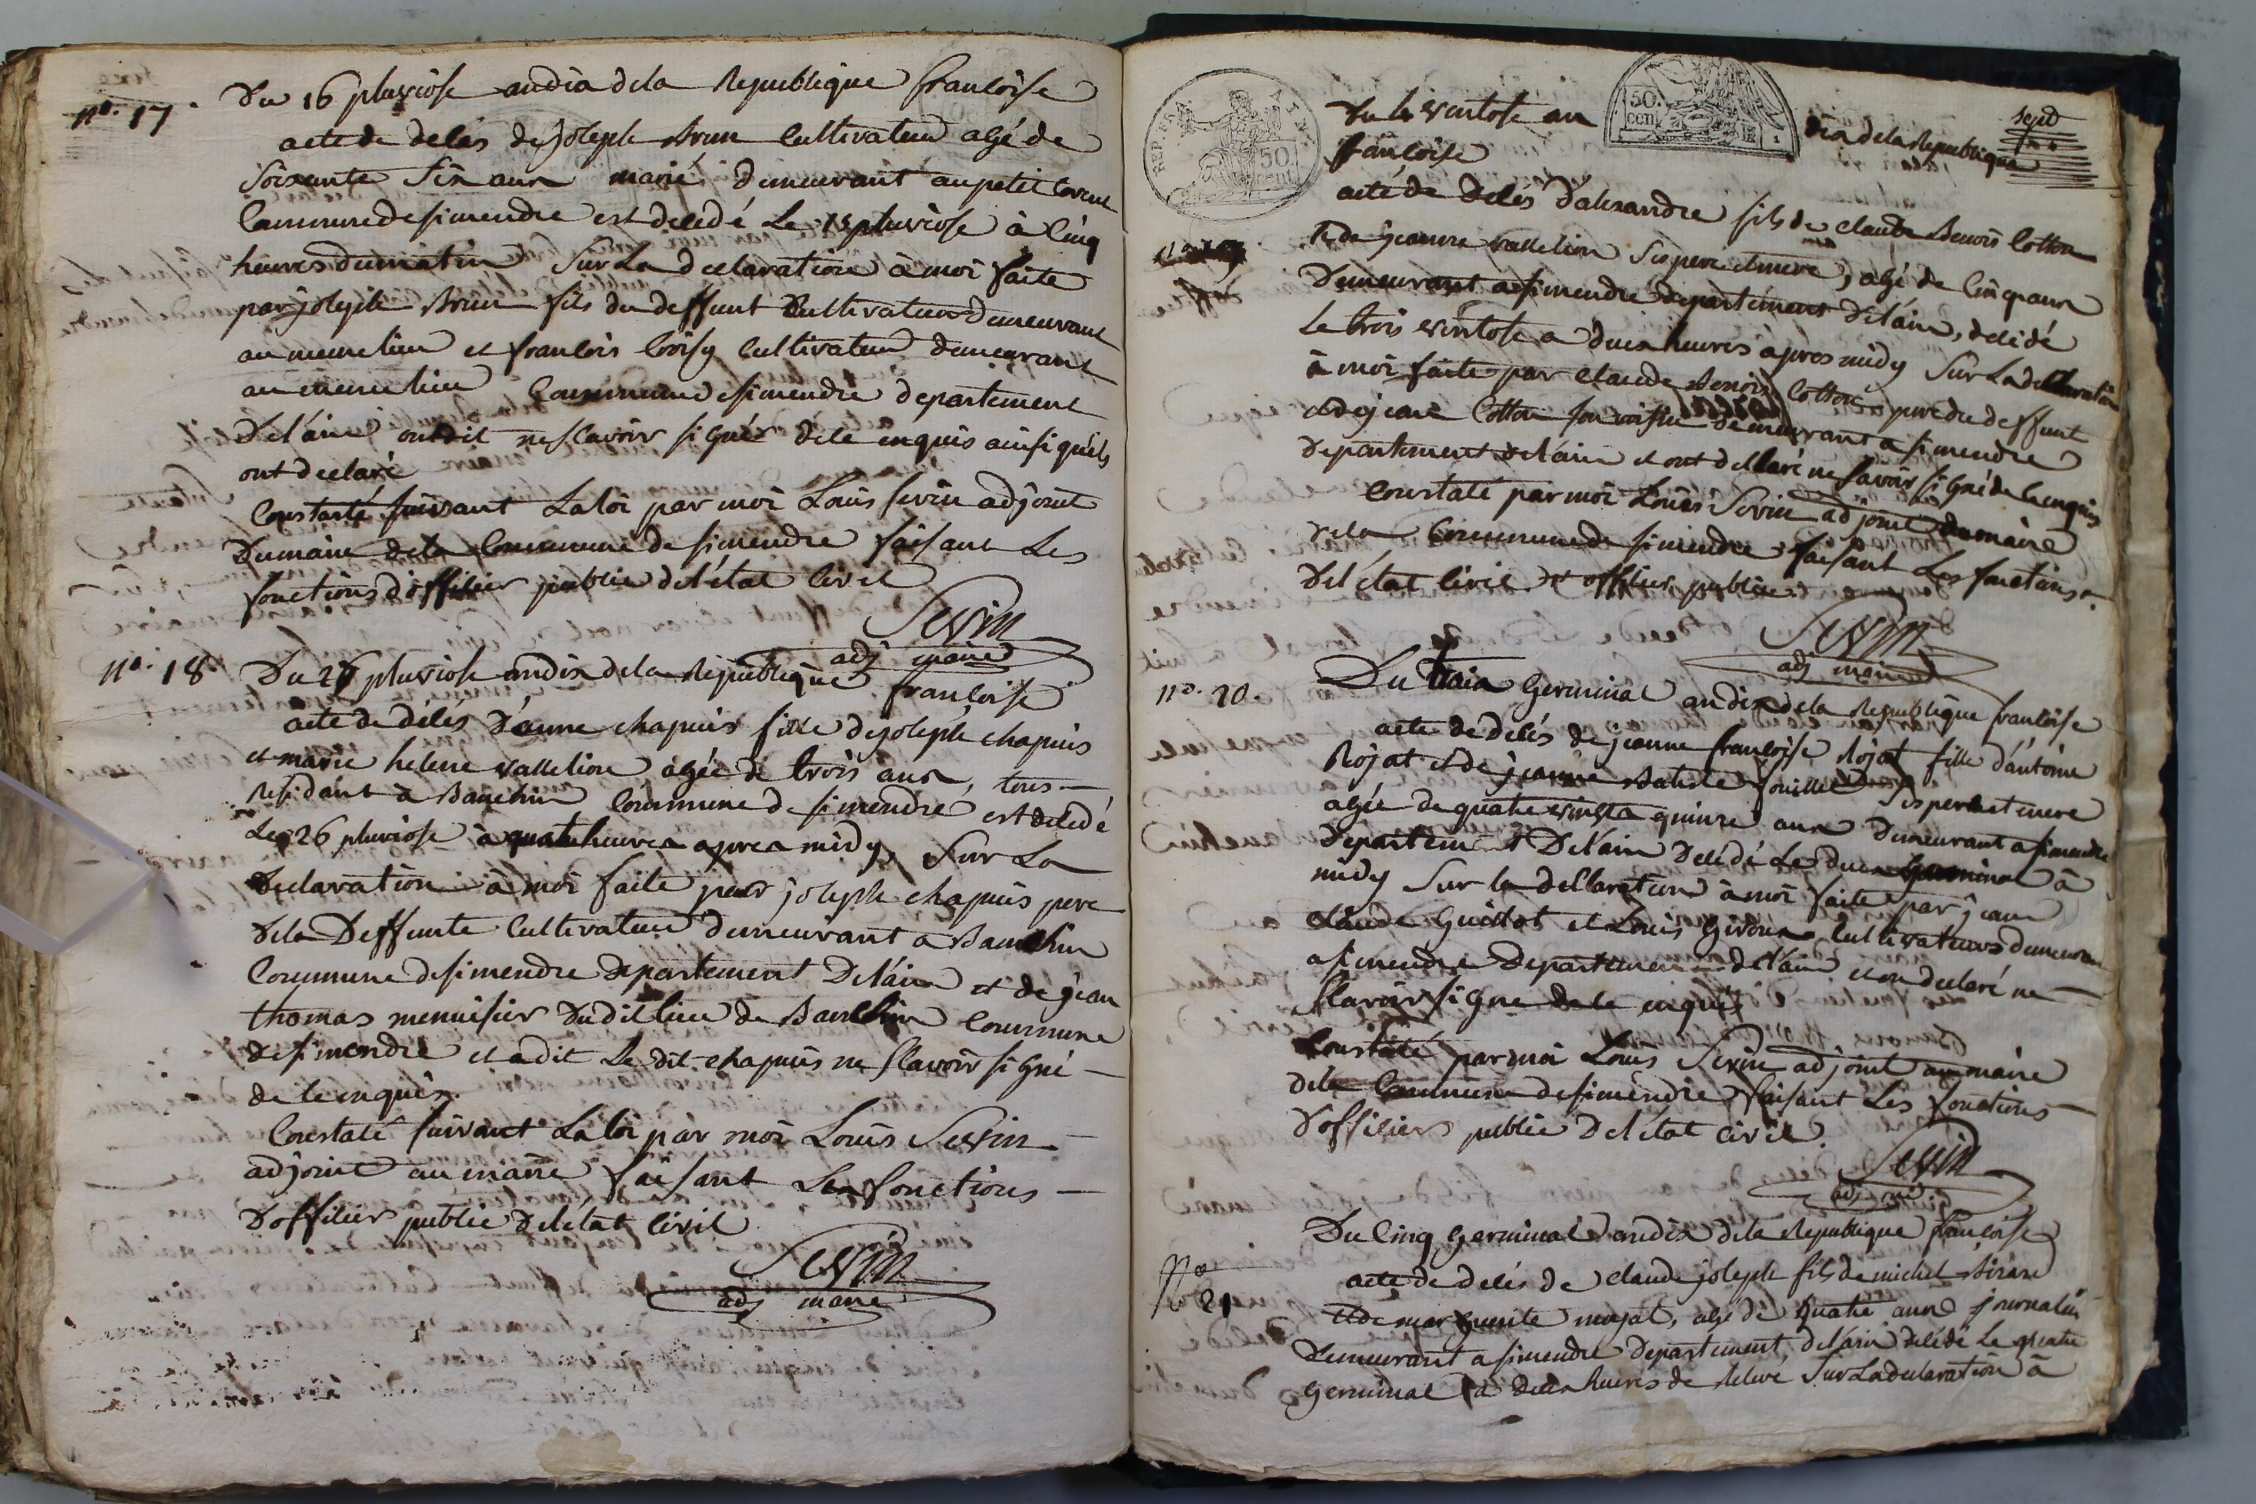 n°. 17.
Du 16 pluviose an dix de la Republique francoise
acte de delés de joseph Brun Cultivateur agé de
Soixante Six ans marié demeurant au petit
Commune de simendre est decedé Le 15 pluviose à Cinq
heures du matin Sur La declaration à moi faite
par joseph Brun fils du deffunt Cultivateur demeurant
au meme lieu et francois Croisy Cultivateur demeurant
au meme lieu Commune de simendre departement
de l'ain ont dit ne scavoir signé de ce enquis ainsi qu'ils
ont declaré
Constaté suivant La loi par moi Louis Sevin adjoint
Du maire de la Commune de simendre faisant Les
fonctions d'officier public de l'état Civil
Sevin
adj maire
n°. 18.
Du 26 pluviose an dix de la Republique francoise
acte de délés d'anne chapuis fille de joseph chapuis
et marie helene vallelion agée de trois ans, tous
Residant à Banchin Commune de simendre, est decedé
Les 26 pluviose à quatre heures apres midy, Sur La
declaration à moi faite par joseph chapuis pere
de la Deffunte Cultivateur demeurant a Banchin
Commune de simendre departement De l'ain et de jean
thomas menuisier Dudit lieu de Banchin Commune
de simendre et a dit Le dit chapuis ne scavoir signé
de ce enquis.
Constaté suivant La loi par moi Louis Sevin
adjoint au maire faisant Les fonctions
D'officier public De l'état Civil
Sevin
adj maire
REP. FRA.
50. cent.
50. cen
sept
Du 4 ventose an dix de la Republique
francoise
acte de Delés d'alexandre fils de claude Benois Cotton
& de jeanne vallelion Ses pere et mere, agé de Cinq ans
Demeurant a simendre departement de l'ain, decidé
Le trois ventose a deux heures apres midy Sur La declaration
à moi faite par claude Benois Cotton pere du deffunt
et de jean Cotton son demeurant a simendre
departement de l'ain et ont declaré ne savoir signé de ce enquis
Constaté par moi Louis Sevin adjoint du maire
de la Commune de simendre faisant Les fonctions
De l'état Civil d'officier public.
Sevin
adj maire
n°. 20.
Du trois Germinal an dix de la Republique francoise
acte de délés de jeanne francoise Rojat fille d'antoine
Rojat et de jeanne Batiste fouillet Ses pere et mere
agée de quatre vingts quinze ans demeurant a simendre
departement De l'ain Decedé Le deux Germinal à
midy Sur la declaration à moi faite par jean
claude Guillot et Louis Giroux Cultivateurs demeurant
a simendre departement de l'ain et on declaré ne
scavoir signe de ce enquis
Constaté par moi Louis Sevin adjoint au maire
de la Commune de simendre faisant Les fonctions
D'officiers public De l'état civil.
Sevin
n° 21
Du Cinq Germinal an dix de la Republique francoise
acte de delés de claude joseph fils de michel Birard
et de marguerite mojat, agé de quatre ans journalier
Demeurant a simendre departement de l'ain decédé Le quatre
Germinal à deux heures de Releve Sur La declaration à